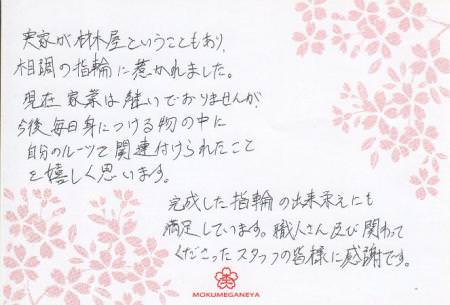 実家が材木屋ということもあり、
木目調の指輪に惹かれました。
現在家業は継いでおりませんが
今後毎日身につける物の中に
自分のルーツで関連付けられたこと
を嬉しく思います。
完成した指輪の出来栄えにも
満足しています。職人さん及び関わって
くださったスタッフの皆様に感謝です。
MOKUMEGANEYA